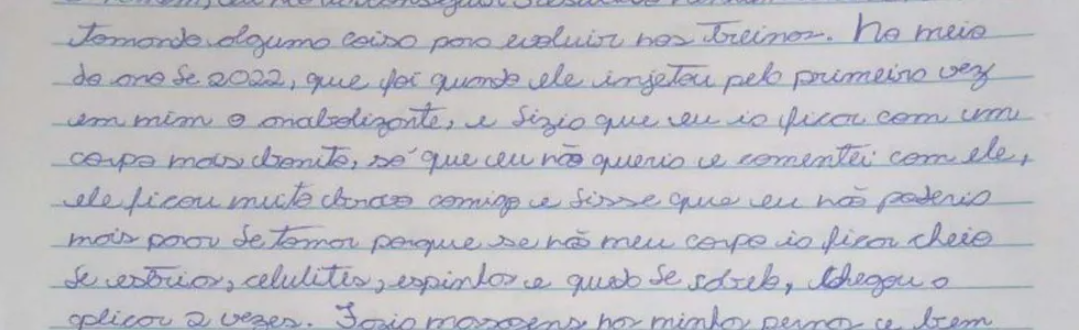 tomando alguma coisa para evoluir nos treinos. No meio
do ano de 2022, que foi quando ele injetou pela primeira vez
em mim o anabolizante, e dizia que eu ia ficar com um
corpo mais bonito, só que eu não queria e comentei com ele,
ele ficou muito bravo comigo e disse que eu não poderia
mais parar de tomar porque se não meu corpo ia ficar cheio
de estrias, celulites, espinhas e queda de cabelo, chegou a
aplicar 2 vezes. Fazia massagens nas minha perna e bem